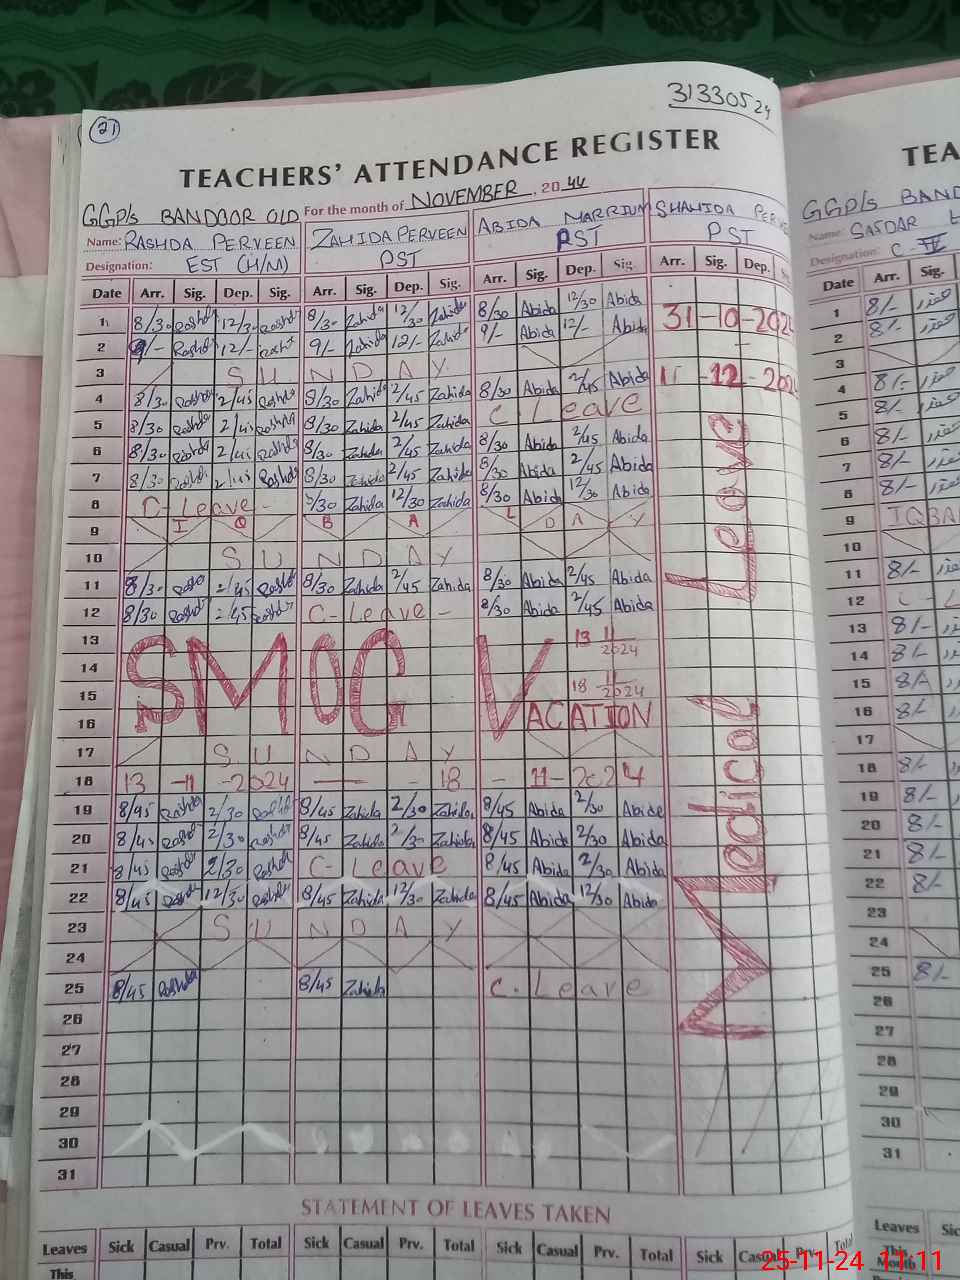 21
31330524
TEACHERS' ATTENDANCE REGISTER
GGP/s BANDOOR OLD For the month of NOVEMBER, 20
Name: RASHDA PERVEEN ZAHIDA PERVEEN ABIDA MARRIUM SHAHIDA
Designation: EST (H/M) PST PST PST
Date Arr. Sig. Dep. Sig. Arr. Sig. Dep. Sig. Arr. Sig. Dep. Sig. Arr. Sig. Dep.
1 8/30 Rashda 12/30 Rashda 8/30 Zahida 12/30 Zahida 8/30 Abida 12/30 Abida 31-10-2024
2 9/- Rashda 12/- Rashda 9/- Zahida 12/- Zahida 9/- Abida 12/- Abida
3 SUNDAY
4 8/30 Rashda 2/45 Rashda 8/30 Zahida 2/45 Zahida 8/30 Abida 2/45 Abida -12-2024
5 8/30 Rashda 2/45 Rashda 8/30 Zahida 2/45 Zahida C. Leave
6 8/30 Rashda 2/45 Rashda 8/30 Zahida 2/45 Zahida 8/30 Abida 2/45 Abida
7 8/30 Rashda 2/45 Rashda 8/30 Zahida 2/45 Zahida 8/30 Abida 2/45 Abida
8 C-Leave- 8/30 Zahida 12/30 Zahida 8/30 Abida 12/30 Abida
9 I Q B A L D A Y
10 SUNDAY
11 8/30 Rashda 2/45 Rashda 8/30 Zahida 2/45 Zahida 8/30 Abida 2/45 Abida
12 8/30 Rashda 2/45 Rashda C-Leave- 8/30 Abida 2/45 Abida
13 13 11/2024
14
15 18 11/2024
16
SMOG VACATION
17 SUNDAY
18 13-11-2024 — - 18-11-2024
19 8/45 Rashda 2/30 Rashda 8/45 Zahida 2/30 Zahida 8/45 Abida 2/30 Abida
20 8/45 Rashda 2/30 Rashda 8/45 Zahida 2/30 Zahida 8/45 Abida 2/30 Abida
21 8/45 Rashda 2/30 Rashda C-Leave 8/45 Abida 2/30 Abida
22 8/45 Rashda 12/30 Rashda 8/45 Zahida 12/30 Zahida 8/45 Abida 12/30 Abida
23 SUNDAY
24
25 8/45 Rashda 8/45 Zahida C. Leave
26
27
28
29
30
31
Medical Leave
STATEMENT OF LEAVES TAKEN
Leaves Sick Casual Prv. Total Sick Casual Prv. Total Sick Casual Prv. Total Sick Casual Prv. Total
This
TEA
GGP/s BAND
Name: SAFDAR
Designation: C. IV
Date Arr. Sig.
1 8/-
2 8/-
3
4 8/-
5 8/-
6 8/-
7 8/-
8 8/-
9 IQBA
10
11 8/-
12 C-L
13 8/-
14 8/-
15
16 8/-
17
18 8/-
19 8/-
20 8/-
21 8/-
22 8/-
23
24
25 8/-
26
27
28
29
30
31
Leaves Sic
This Month
25-11-24 11:11